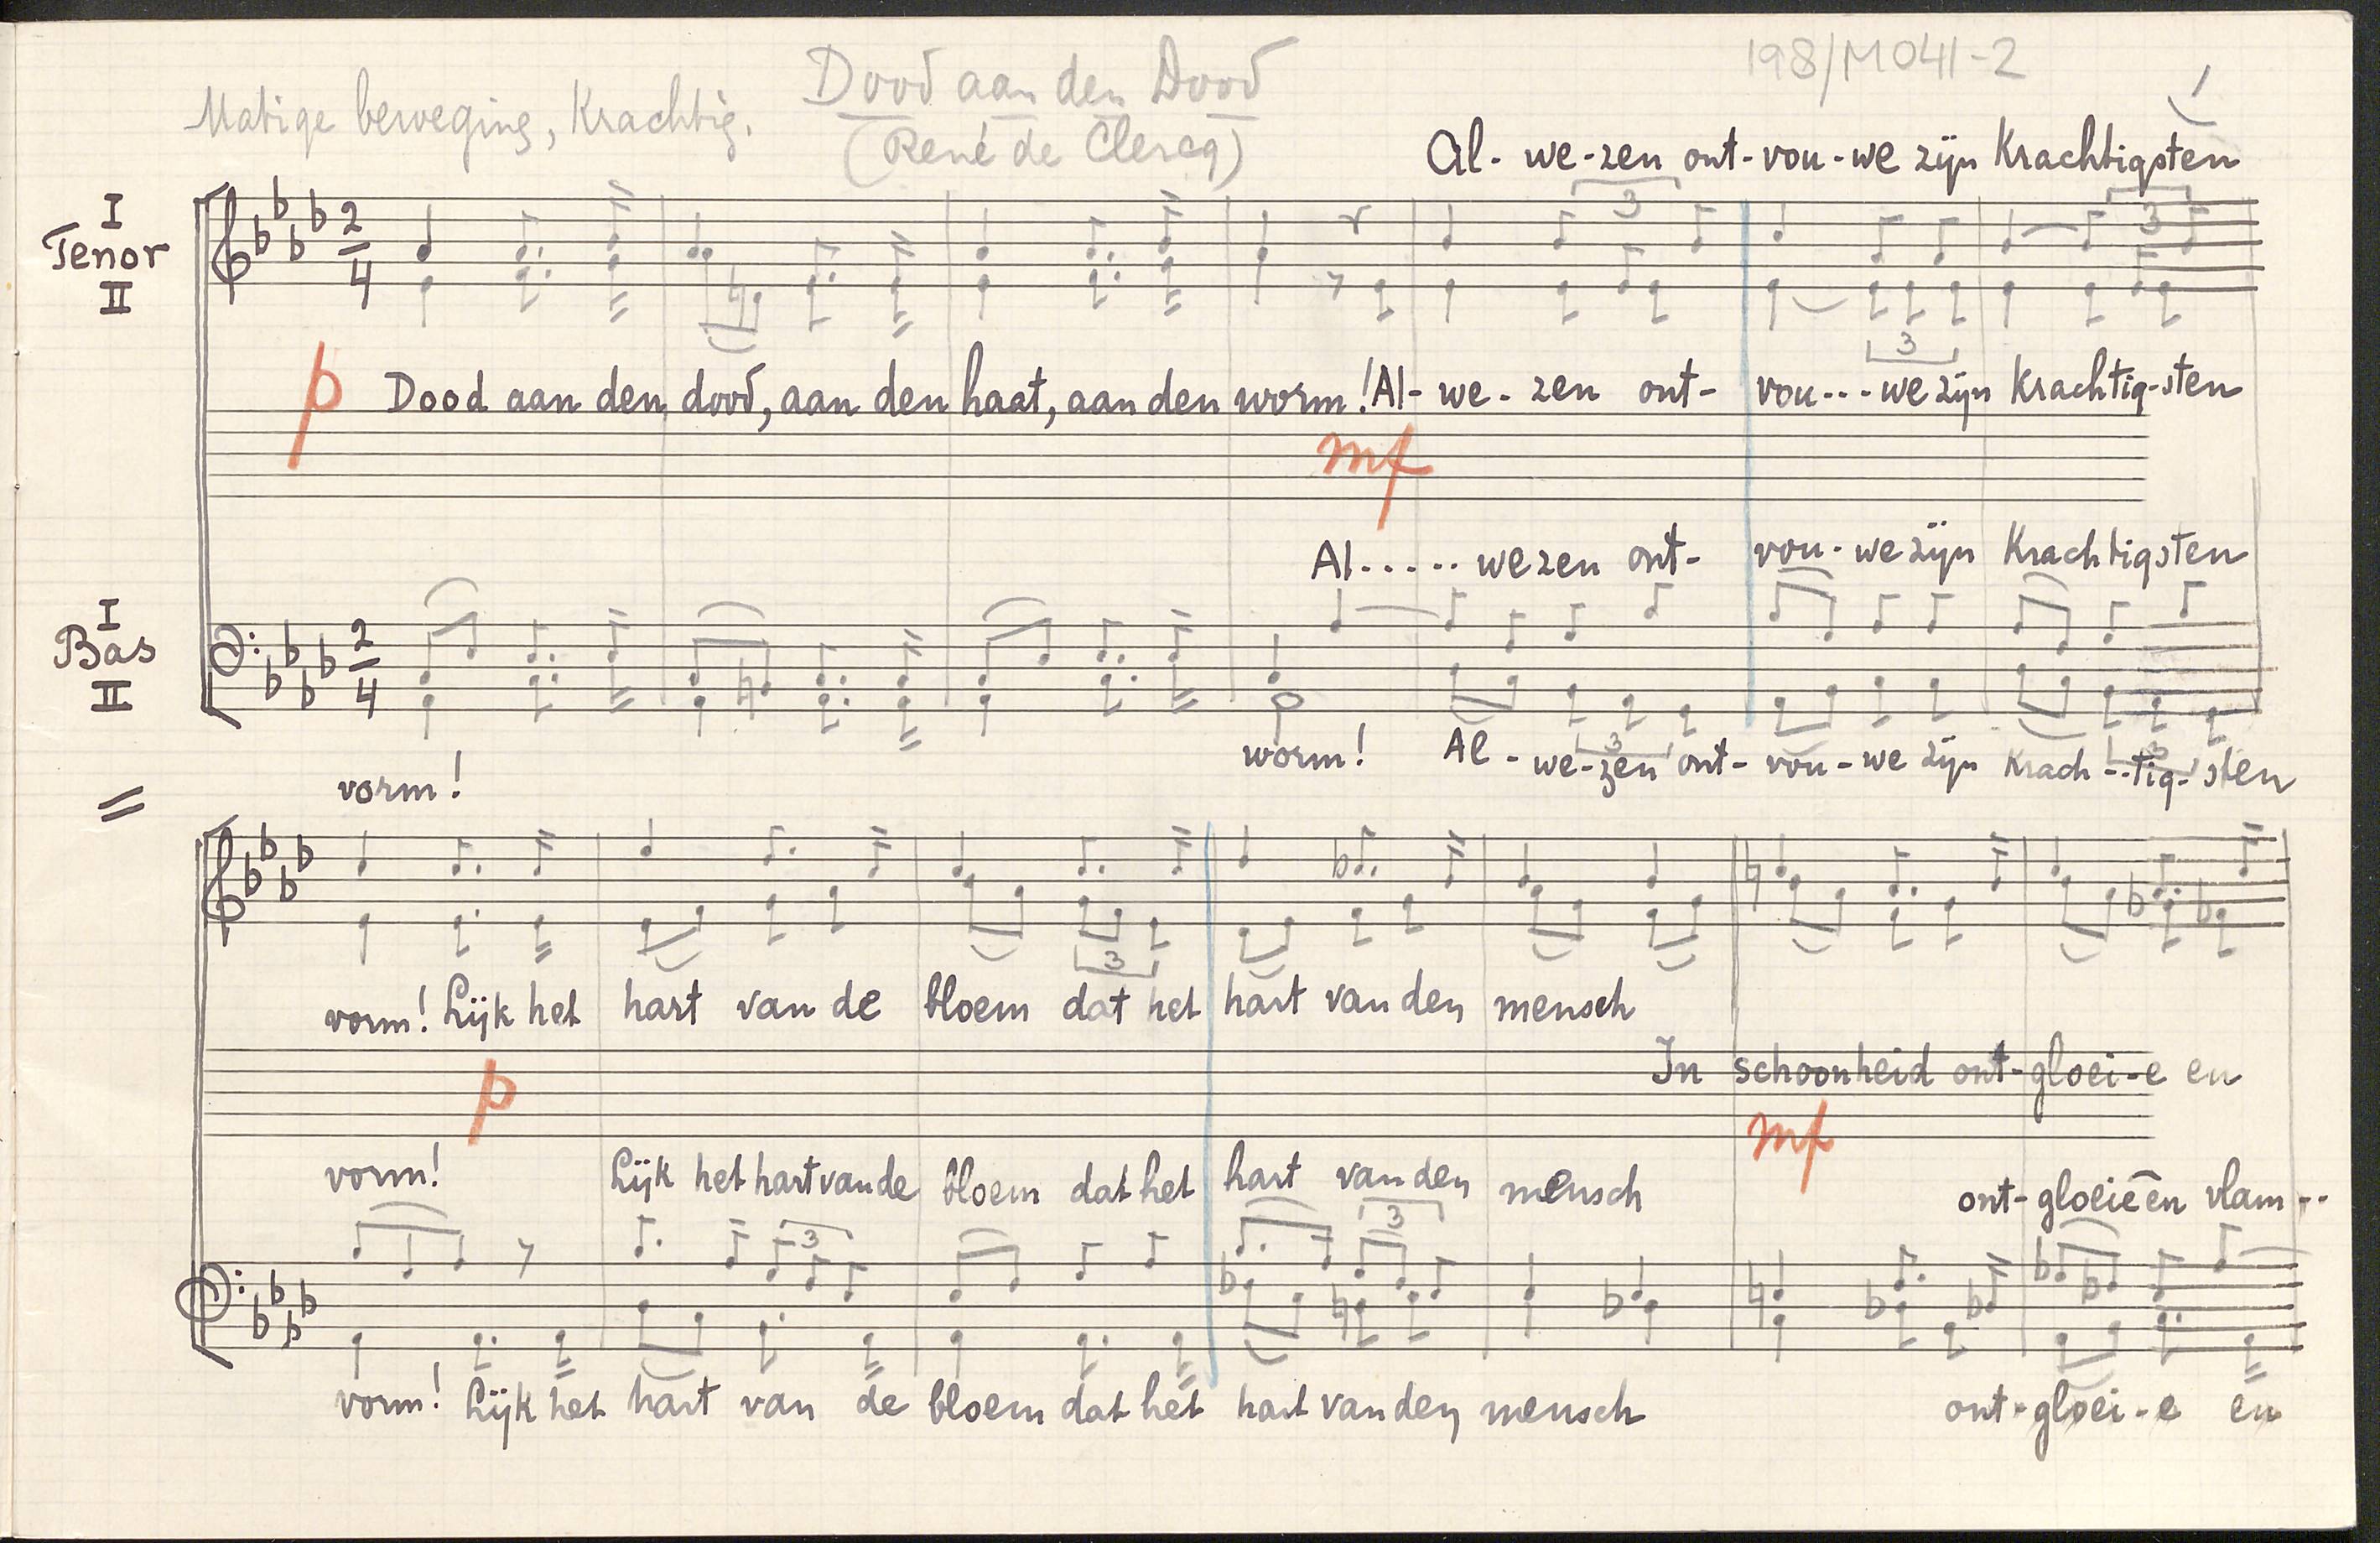 198/M041-2
Dood aan den Dood
Matige beweging, Krachtig.
(René de Clercq)
1
Al- we-zen ont-vou-we zijn Krachtigsten
I
Tenor
II
2
4
3
3
3
p Dood aan den dood, aan den haat, aan den worm! Al- we- zen ont- vou--- we zijn Krachtig-sten
mf
Al...... wezen ont- vou- we zijn Krachtigsten
I
Bas
II
2
4
3
3
worm! Al - we-zen ont- vou - we zijn Krach --tig- sten
vorm!
3
vorm! Lijk het hart van de bloem dat het hart van den mensch
In schoonheid ont-gloei-e en
p
mf
vorm! Lijk het hart van de bloem dat het hart van den mensch ont- gloeie en vlam --
3
3
vorm! Lijk het hart van de bloem dat het hart van den mensch ont-gloei-e en